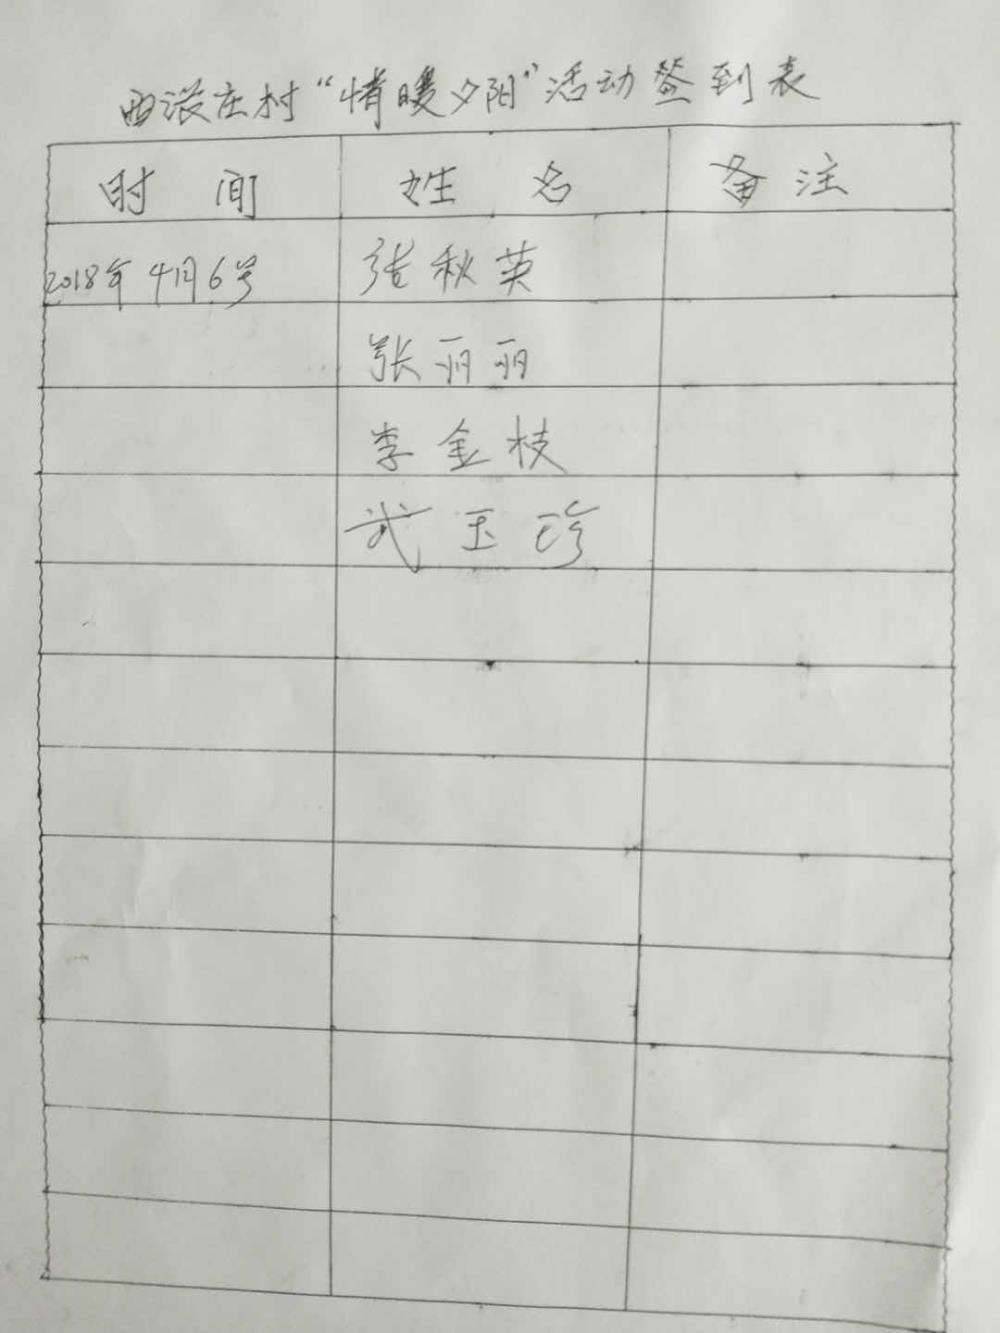 西滋庄村“情暖夕阳”活动签到表
时间 姓名 备注
2018年4月6号 张秋英
张丽丽
李金枝
武玉珍